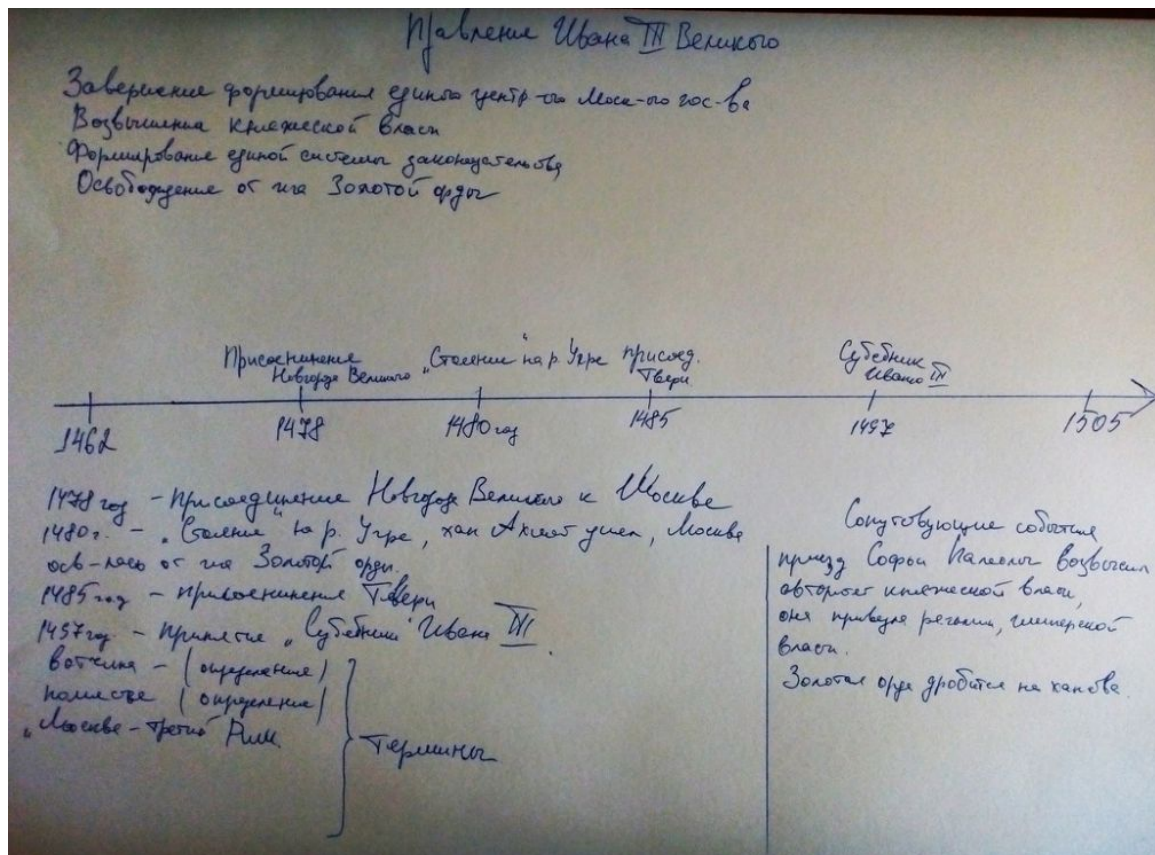 Правление Ивана III Великого
Завершение формирования единого центр-ого Моск-ого гос-ва
Возвышения княжеской власти
Формирование единой системы законодательства
Освобождение от ига Золотой орды
Присоенинение
Новгорода Великого
"Стояние" на р. Угре
присоед.
Твери
Судебник
Ивана III
1462
1478
1480 год
1485
1497
1505
1478 год - присоединение Новгорода Великого к Москве
1480 г. - "Стояние" на р. Угре, хан Ахмат ушел, Москва
осв-лась от ига Золотой орды.
1485 год - присоенинение Твери
1497 год - принятие "Судебника" Ивана III.
вотчина - (определение)
поместье (определение)
"Москва - третий Рим.
Термины
Сопутсвующие события
приезд Софьи Палеолог возвысил
авторитет княжеской власти,
она привезла регалии, императорской
власти.
Золотая орда дробится на ханства.